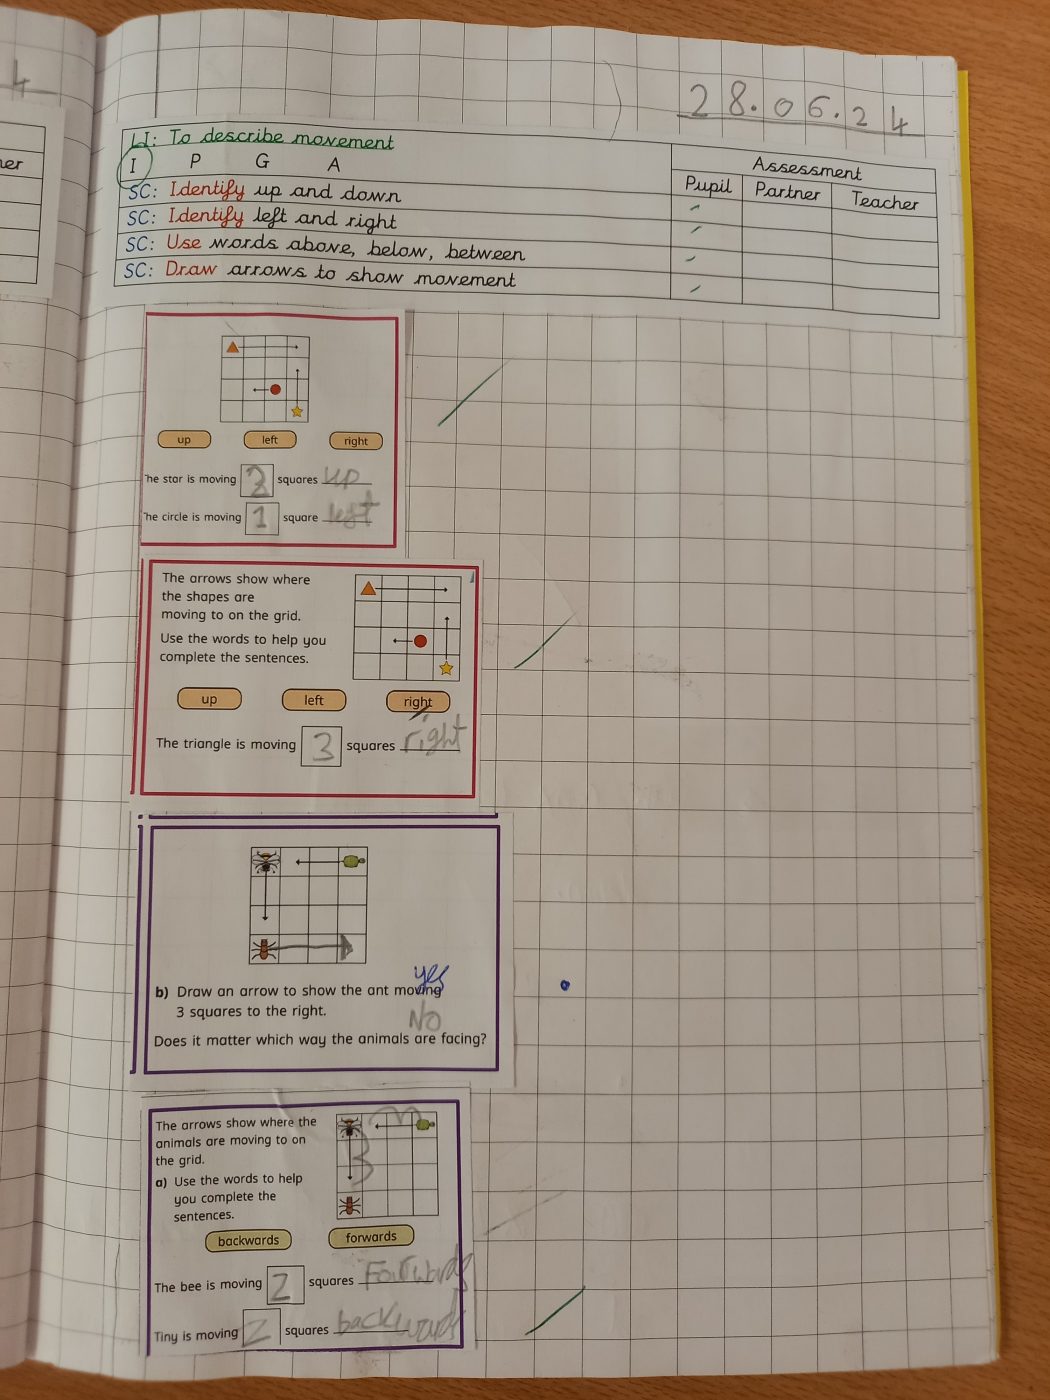 4
28.06.24
er
LI: To describe movement
I P G A
Assessment
Pupil Partner Teacher
SC: Identify up and down
SC: Identify left and right
SC: Use words above, below, between
SC: Draw arrows to show movement
up left right
he star is moving squares up
he circle is moving 1 square left
The arrows show where
the shapes are
moving to on the grid.
Use the words to help you
complete the sentences.
up left right
The triangle is moving 3 squares right
yes
b) Draw an arrow to show the ant moving
3 squares to the right.
NO
Does it matter which way the animals are facing?
The arrows show where the
animals are moving to on
the grid.
3
a) Use the words to help
you complete the
sentences.
backwards forwards
The bee is moving 2 squares Forwards
Tiny is moving 2 squares backwards